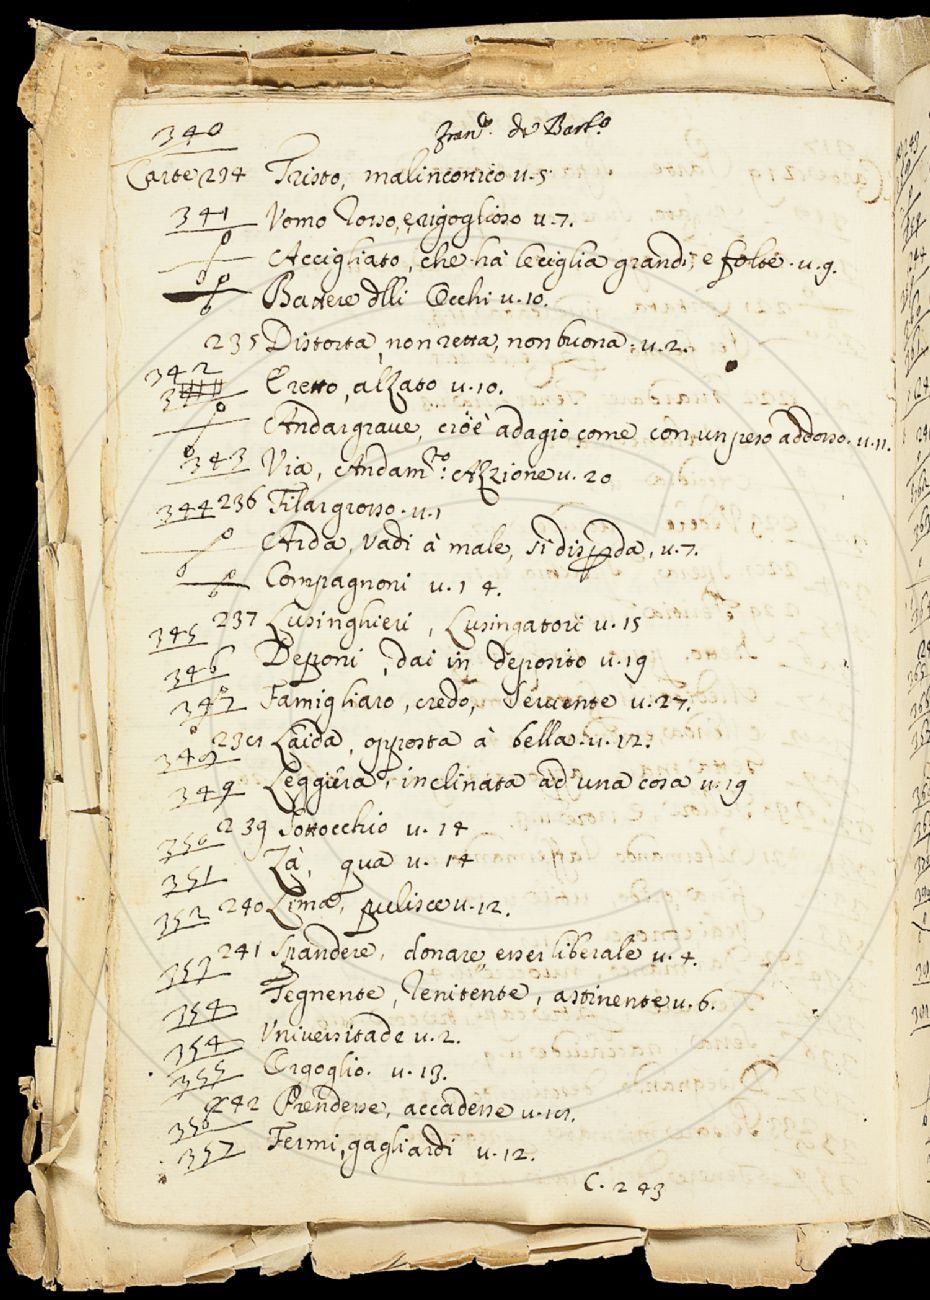 Fran.º de Barb.º
340
Carte 234 Tristo, malinconico u. 5
341 Vomo Torso, e rigoglioso u. 7.
Accigliato, che hà le ciglia grandi, e folte. u. 9.
Battere dlli Occhi u. 10.
235 Distorta, non retta, non buona. u. 2.
342 Eretto, alzato u. 10.
Andar graue, cioè adagio come con un peso addosso. u. 11.
343 Via, Andam.to: Azzione u. 20
344 236 Filar grosso. u. 1
Arda, Vadi à male, si disperda, u. 7.
Compagnoni u. 14.
345 237 Lusinghieri, Lusingatori u. 15
346 Deponi, dai in deposito u. 19
347 Famigliaro, credo, Seruente u. 27.
348 238 Laida, opposta à bella. u. 12.
349 Leggiera, inclinata ad una cosa u. 19
350 239 Sottocchio u. 14
351 Zà, qua u. 14
352 240 Lima, pulisce u. 12.
353 241 Spandere, donare, esser liberale u. 4.
354 Tegnente, Tenitente, astinente u. 6.
354 Vniuersitade u. 2.
355 Orgoglio. u. 13.
356 242 Prendesse, accadesse u. 18.
357 Fermi, gagliardi u. 12.
C. 243